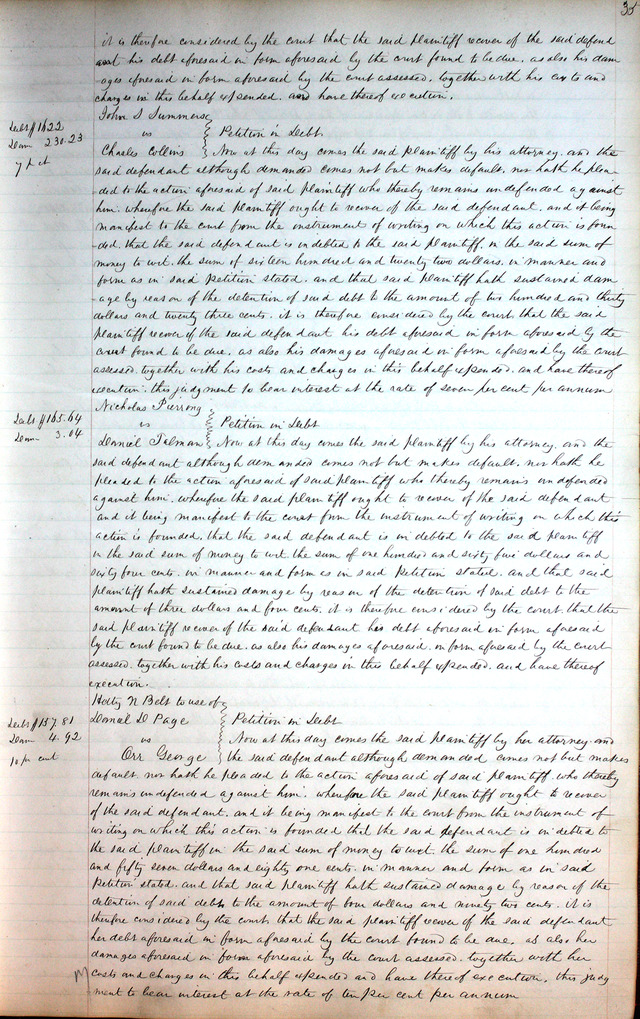 35
it is therefore considered by the court that the said plaintiff recover of the said defend
ant his debt aforesaid in form aforesaid by the court found to be due. as also his dam
ages aforesaid in form aforesaid by the court assessed. together with his costs and
charges in this behalf expended. and have thereof execution.
John S Summers
Debt $1622
Dam 230.23
7 p ct
vs Petition in Debt
Charles Collins Now at this day comes the said plaintiff by his attorney. and the
said defendant although demanded comes not but makes default. nor hath he plea
ded to the action aforesaid of said plaintiff who thereby remains undefended against
him. wherefore the said plaintiff ought to recover of the said defendant. and it being
manifest to the court from the instrument of writing on which this action is foun
ded. that the said defendant is indebted to the said plaintiff. in the said sum of
money to wit. the sum of sixteen hundred and twenty two dollars. in manner and
form as in said Petition stated. and that said plaintiff hath sustained dam
age by reason of the detention of said debt to the amount of two hundred and thirty
dollars and twenty three cents. it is therefore considered by the court that the said
plaintiff recover of the said defendant his debt aforesaid in form aforesaid by the
court found to be due. as also his damages aforesaid in form aforesaid by the court
assessed. together with his costs and charges in this behalf expended. and have thereof
execution. this judgment to bear interest at the rate of seven per cent per annum
Nicholas Pierrong
Debt $165.64
Dam 3.04
vs Petition in Debt
Daniel Tilman Now at this day comes the said plaintiff by his attorney. and the
said defendant although demanded comes not but makes default. nor hath he
pleaded to the action aforesaid of said plaintiff who thereby remains undefended
against him. wherefore the said plaintiff ought to recover of the said defendant
and it being manifest to the court from the instrument of writing on which this
action is founded. that the said defendant is indebted to the said plaintiff
in the said sum of money to wit the sum of one hundred and sixty five dollars and
sixty four cents. in manner and form as in said Petition stated. and that said
plaintiff hath sustained damage by reason of the detention of said debt to the
amount of three dollars and four cents. it is therefore considered by the court that the
said plaintiff recover of the said defendant his debt aforesaid in form aforesaid
by the court found to be due. as also his damages aforesaid. in form aforesaid by the court
assessed. together with his costs and charges in this behalf expended. and have thereof
execution.
N Belt to use of
Debt $157.81
Dam 4.92
10 p cent
D Page Petition in Debt
vs Now at this day comes the said plaintiff by her attorney. and
Orr George the said defendant although demanded comes not but makes
default. nor hath he pleaded to the action aforesaid of said plaintiff. who thereby
remains undefended against him. wherefore the said plaintiff ought to recover
of the said defendant. and it being manifest to the court from the instrument of
writing on which this action is founded that the said defendant is indebted to
the said plaintiff in the said sum of money to wit. the sum of one hundred
and fifty seven dollars and eighty one cents. in manner and form as in said
Petition stated. and that said plaintiff hath sustained damage by reason of the
detention of said debt to the amount of four dollars and ninety two cents. it is
therefore considered by the court. that the said plaintiff recover of the said defendant
her debt aforesaid in form aforesaid by the court found to be due. as also her
damages aforesaid in form aforesaid by the court assessed. together with her
costs and charges in this behalf expended and have thereof execution, this judg
ment to bear interest at the rate of ten per cent per annum